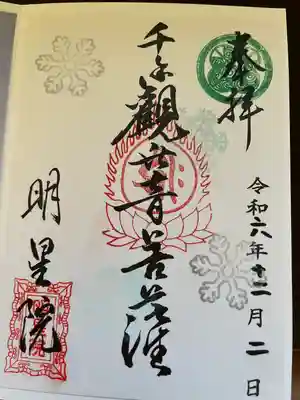 奉拝
令和六年十二月二日
千手觀世音菩薩
明星院